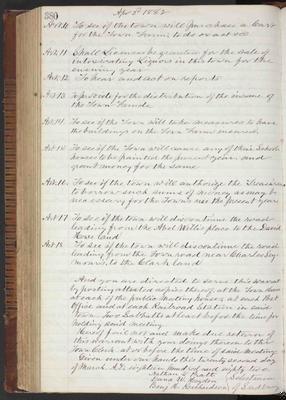 380
Apr 3d 1882
Art. 10. To see if the town will purchase a
for the Town Farm, to do or act
Art. 11. Shall Licenses be granted for the Sale of
intoxicating Liquors in this town for the
ensuing year
Art. 12. To hear and act on reports
Art. 13. to provide for the distribution of the income of
the Town Funds
Art. 14. To see if the Town will take measures to have
the buildings on the Town Farm insured
Art. 15. To see if the Town will cause any of their School
houses to be painted the present year and
grant money for the same
Art. 16. To see if the town will authorize the Treasurer
to borrow such sums of money as may be
necessary for the Towns use the present year
Art. 17. To see if the town will discontinue the road
leading from the Abel Willis place to the
land
Art. 18. To see if the town will discontinue the road
leading from the Town road near Charles
to the Clark land
And you are directed to serve this warrant
by posting attested copies thereof, at the Town House
at each of the public Meeting houses, at each Post
Office and at each Railroad Station in said
Town two Sabbaths at least before the time for
holding said meeting
Hereof fail not and make due return of
this warrant with your doings thereon to the
Town Clerk at or before the time of said Meeting
Given under our hands this twenty second day
of March A.D. eighteen hundred and eighty two
Pratt
Hayden Selectmen
Richardson of Sudbury